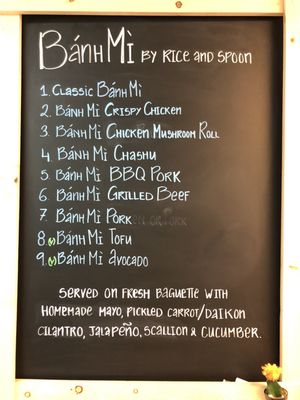 Bánh Mì by Rice and Spoon
1. Classic Bánh Mì
2. Bánh Mì Crispy Chicken
3. Bánh Mì Chicken Mushroom Roll
4. Bánh Mì Chashu
5. Bánh Mì BBQ Pork
6. Bánh Mì Grilled Beef
7. Bánh Mì Pork
8. (v) Bánh Mì Tofu
9. (v) Bánh Mì Avocado
Served on fresh baguette with
homemade mayo, pickled carrot/daikon
cilantro, jalapeño, scallion & cucumber.